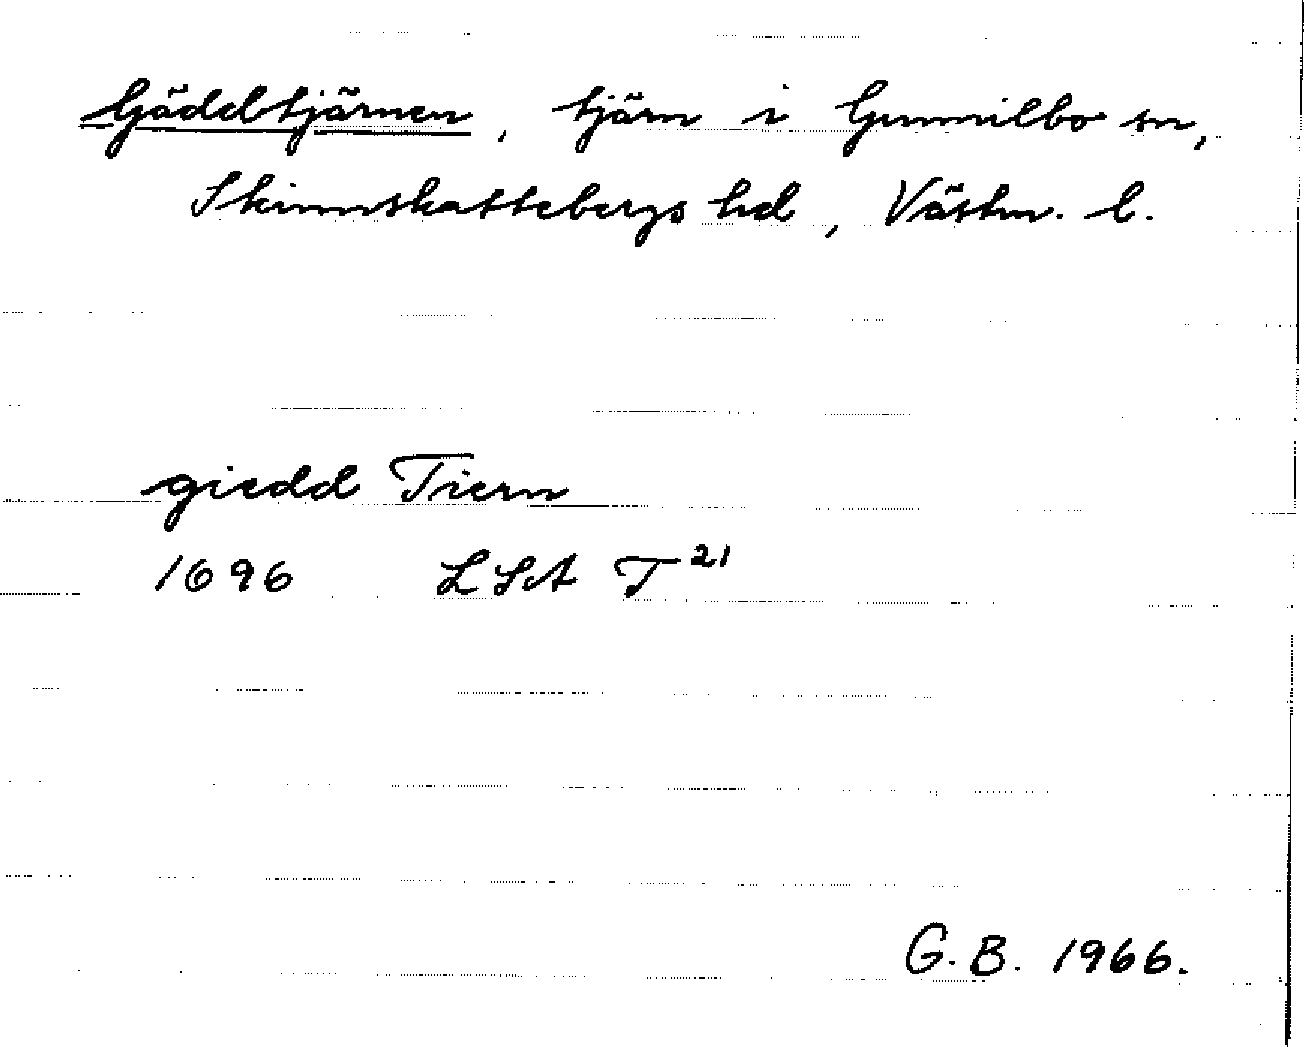 Gäddtjärnen, tjärn i Gunnilbo sn,
Skinnskattebergs hd, Västm. l.
giedd Tiern
1696 LSA T²¹
G. B. 1966.